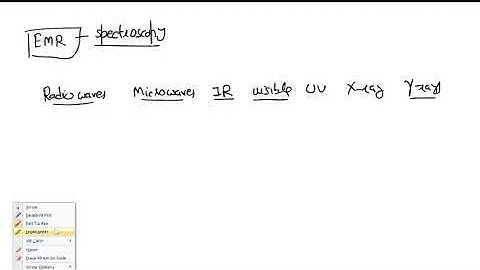 EMR - spectroscopy
Radio waves Microwaves IR visible UV X-ray γ rays
Arrow
Ballpoint Pen
Felt Tip Pen
Highlighter
Ink Color
Eraser
Erase All Ink on Slide
Arrow Options